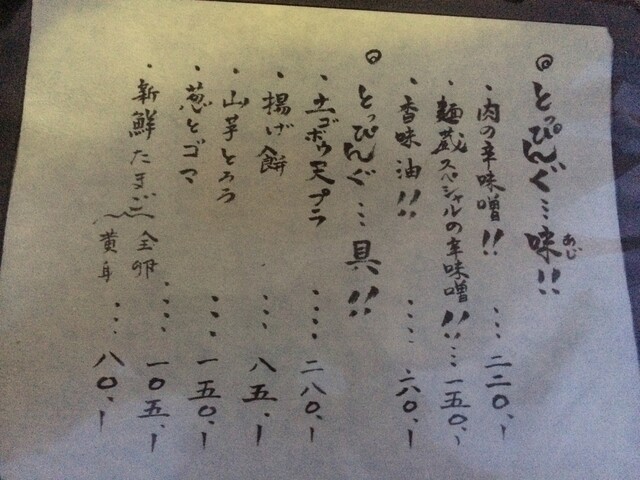 ◎とっぴんぐ…味!!
あじ
・肉の辛味噌!! …二二〇、ー
・麺蔵スペシャルの辛味噌!!…一五〇、ー
・香味油!! ‥‥六〇、ー
◎とっぴんぐ…具!!
・土ゴボウ天プラ ‥‥二八〇、ー
・揚げ餅 …八五、ー
・山芋とろろ …一五〇、ー
・葱とゴマ
・新鮮たまご 全卵 ‥‥一〇五、ー
黄身 ‥‥八〇、ー